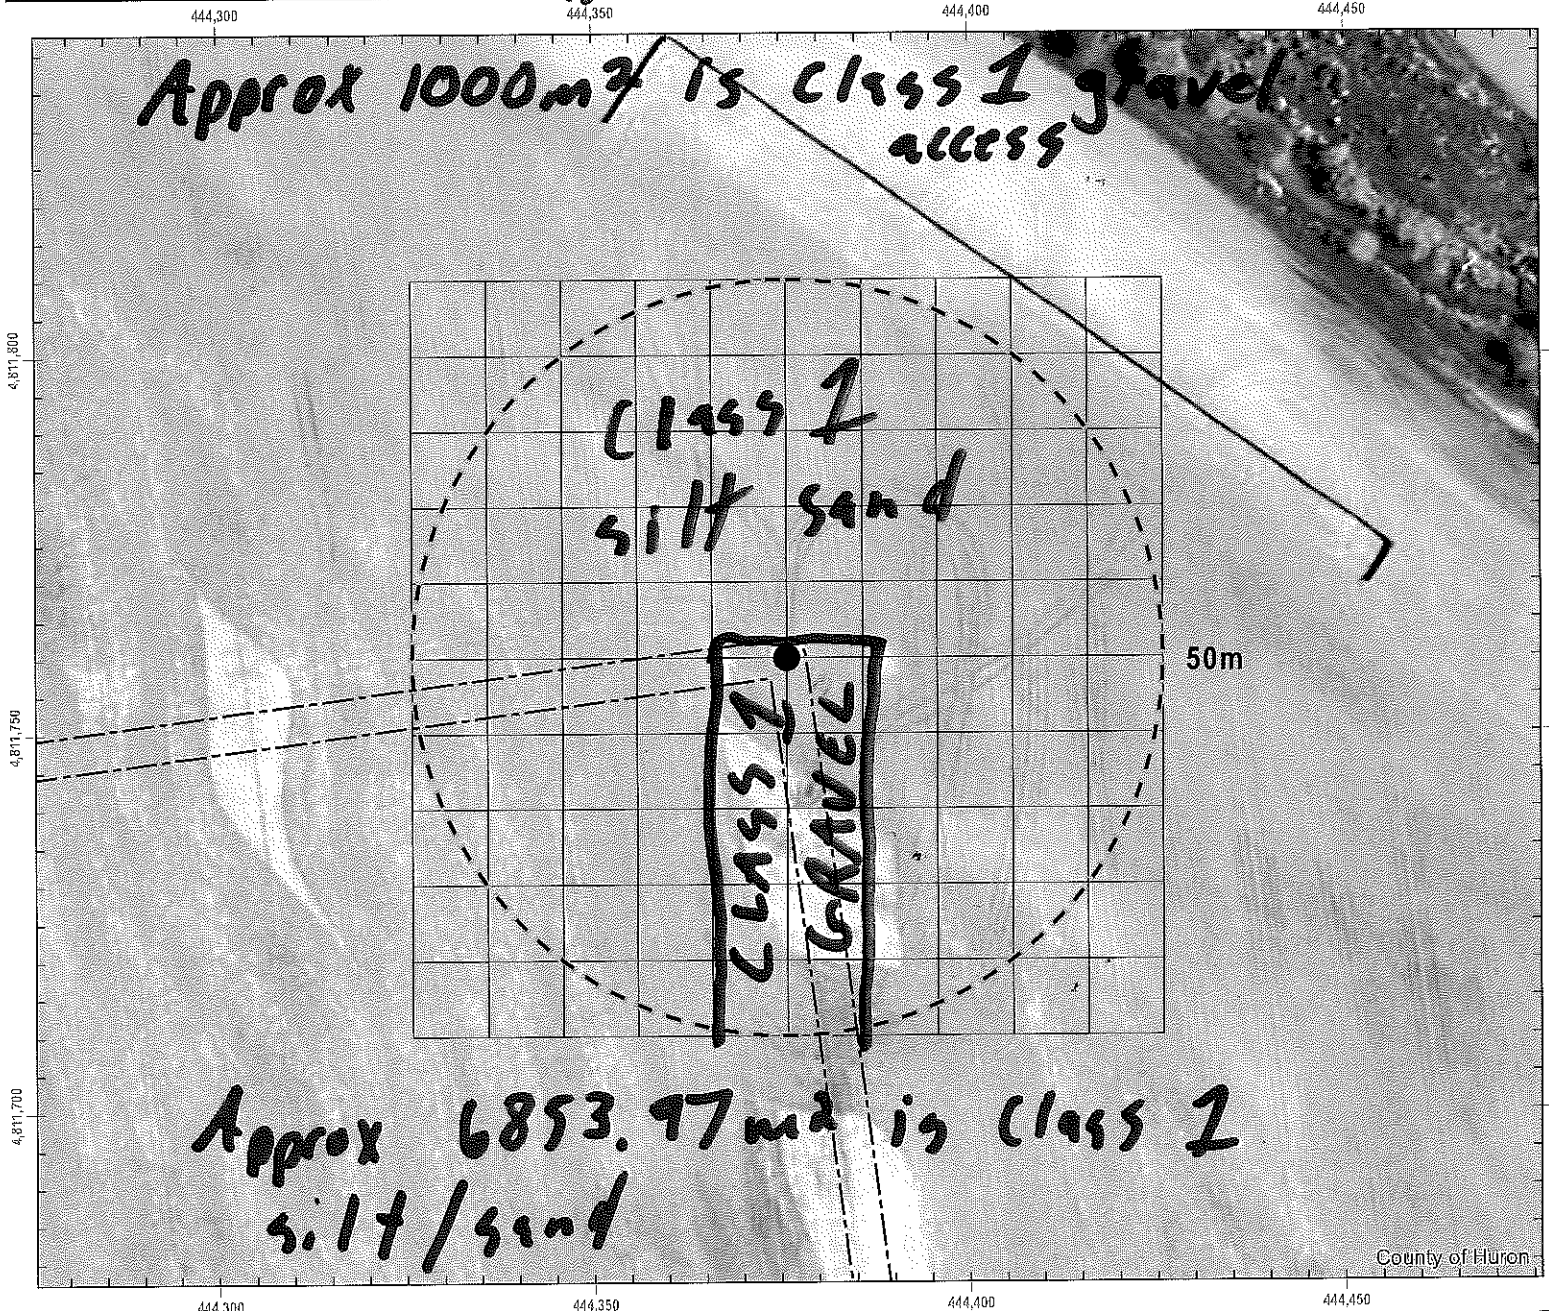 444,300 444,350 444,400 444,450
Approx 1000m2 is Class 1 gravel
access
4,811,800
Class 1
silt sand
50m
4,811,750
CLASS 1
GRAVEL
4,811,700
Approx 6853.97m2 is Class 1
silt/sand
County of Huron
444,300 444,350 444,400 444,450